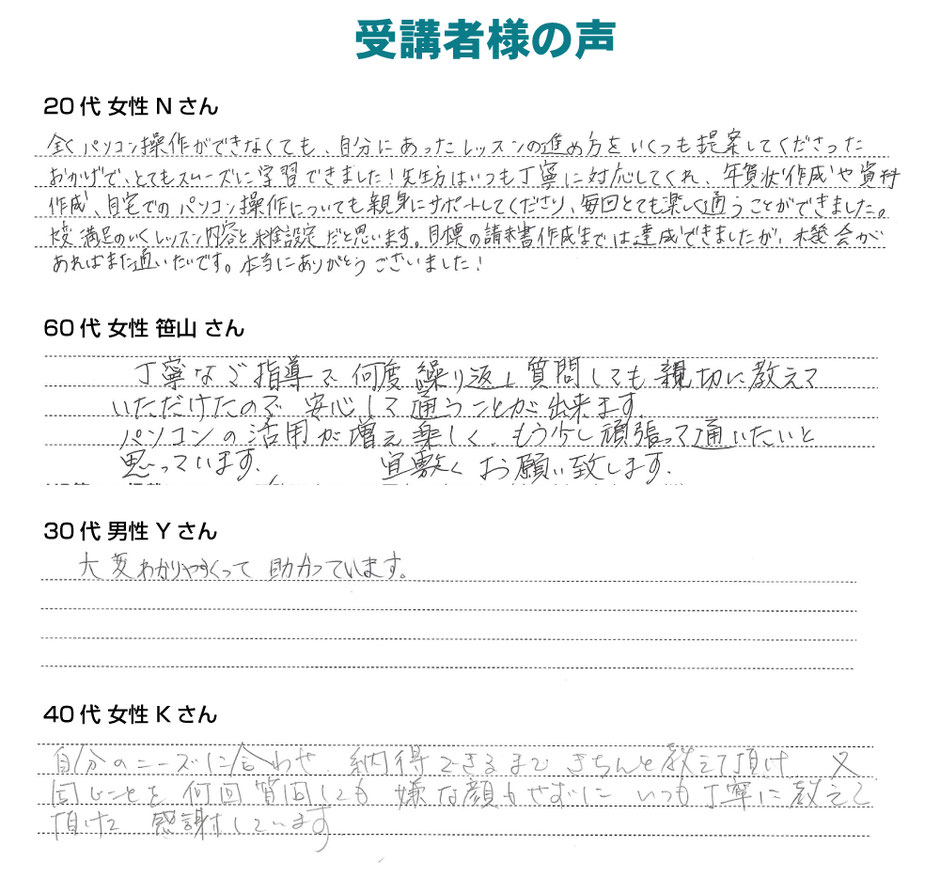 受講者様の声
20代 女性 N さん
全くパソコン操作ができなくても、自分にあったレッスンの進め方をいくつも提案してくださった
おかげで、とてもスムーズに学習できました!先生方はいつも丁寧に対応してくれ、年賀状作成や資料
作成、自宅でのパソコン操作についても親身にサポートしてくださり、毎回とても楽しく通うことができました。
大変満足のいくレッスン内容と料金設定だと思います。目標の請求書作成までは達成できましたが、機会が
あればまた通いたいです。本当にありがとうございました!
60代 女性 笹山 さん
丁寧なご指導で何度繰り返し質問しても親切に教えて
いただけたので安心して通うことが出来ます
パソコンの活用が増え楽しく、もう少し頑張って通いたいと
思っています. 宜敷くお願い致します.
30代 男性 Y さん
大変わかりやすくって助かっています。
40代 女性 K さん
自分のニーズに合わせ 納得できるまできちんと教えて頂け 又
同じことを何回質問しても 嫌な顔もせずに いつも丁寧に教えて
頂けて 感謝しています